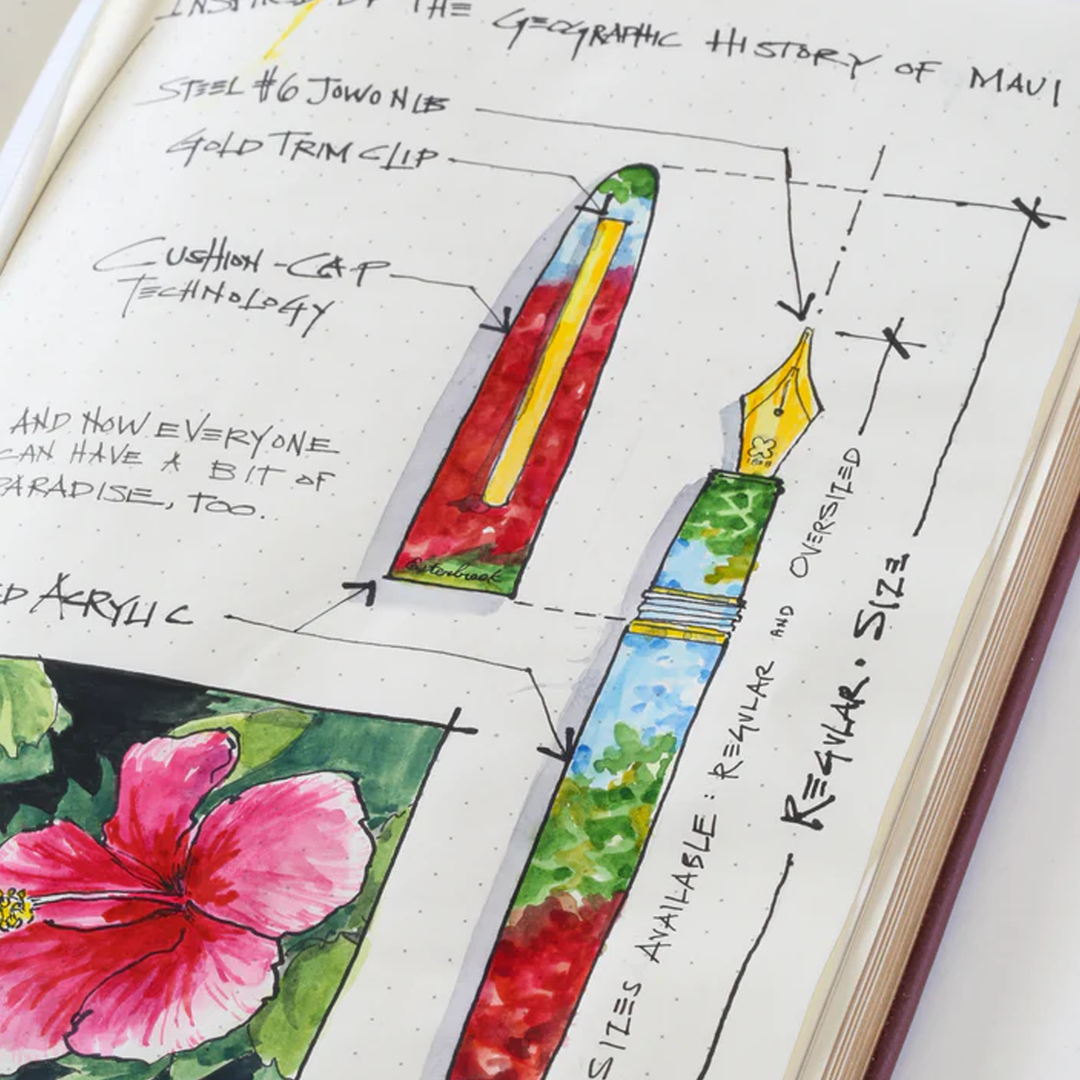 INSPIRED BY THE GEOGRAPHIC HISTORY OF MAUI
STEEL #6 JOWO NIB
GOLD TRIM CLIP
CUSHION-CAP
TECHNOLOGY
AND NOW EVERYONE
CAN HAVE A BIT OF
PARADISE, TOO.
ACRYLIC
Esterbrook
SIZES AVAILABLE: REGULAR AND OVERSIZED
REGULAR. SIZE